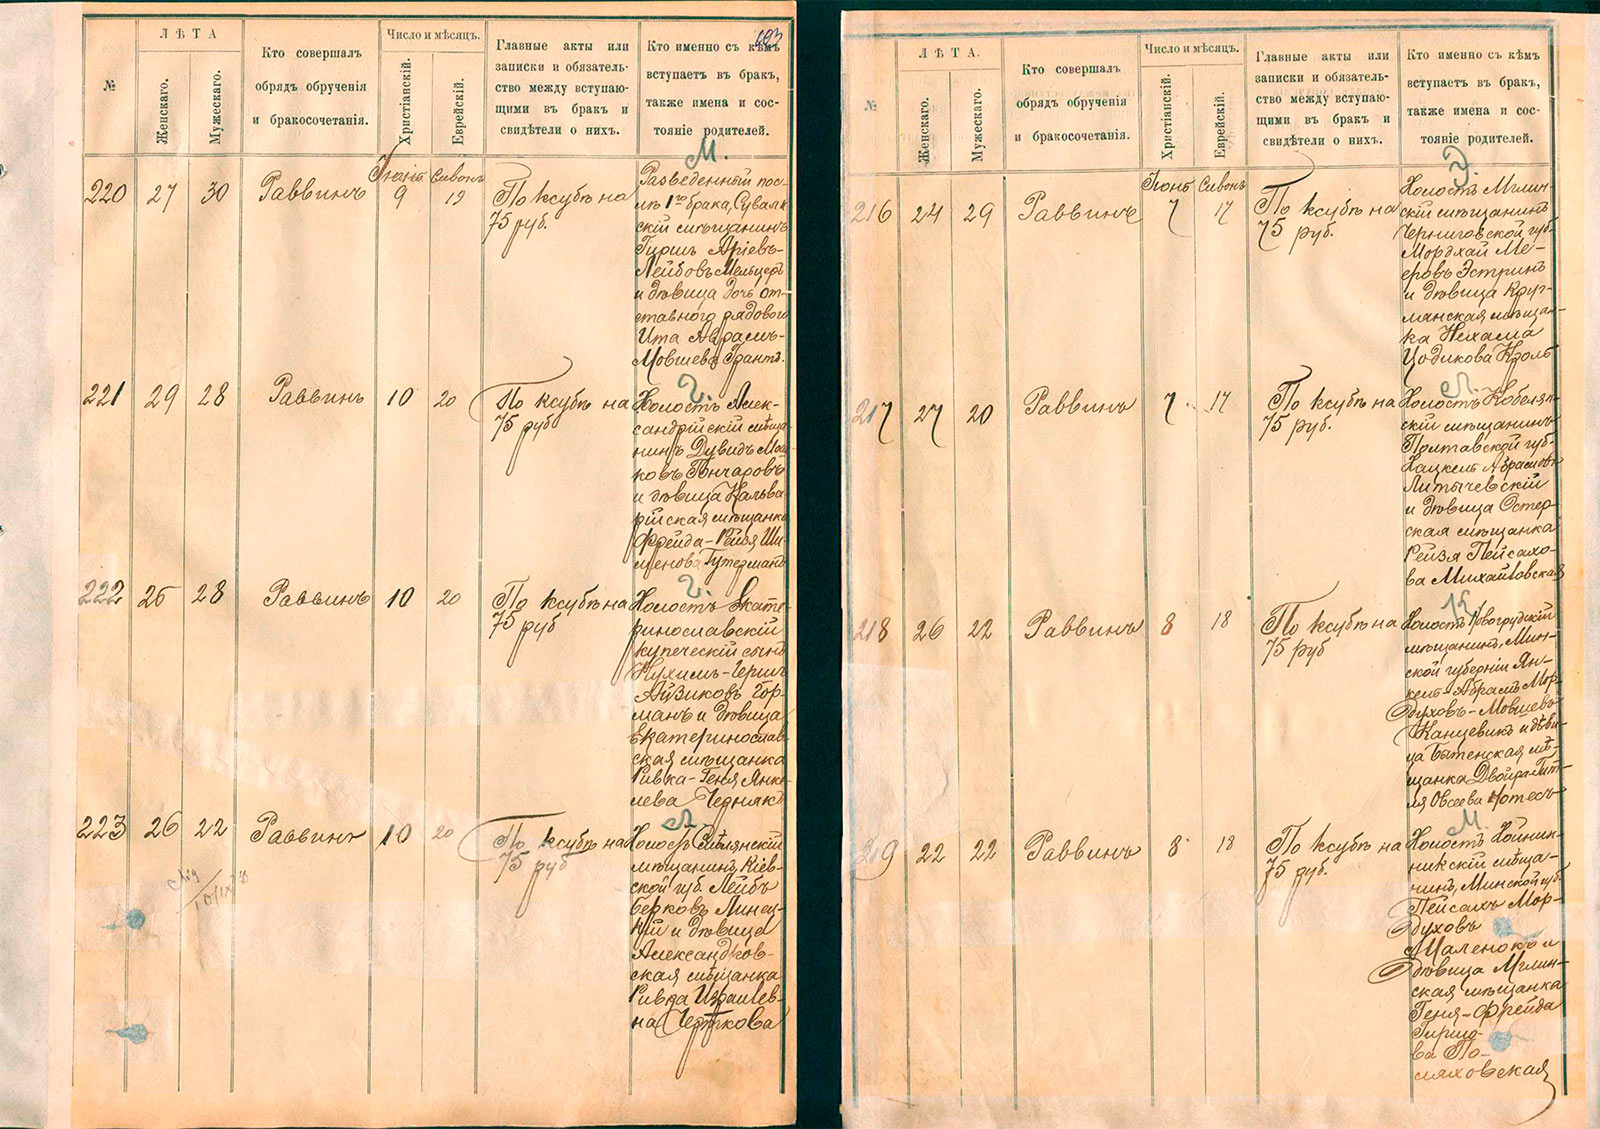 203
№
ЛѢТА
Женскаго.
Мужескаго.
Кто совершалъ
обрядъ обрученія
и бракосочетанія.
Число и мѣсяцъ.
Христіанскій.
Еврейскій.
Главные акты или
записки и обязатель-
ство между вступаю-
щими въ бракъ и
свидѣтели о нихъ.
Кто именно съ кѣмъ
вступаетъ въ бракъ,
также имена и сос-
тояніе родителей.
М.
220
27
30
Раввинъ
Іюнь
9
Сивонъ
19
По ксубѣ на
75 руб.
Разведенный пос-
лѣ 1го брака, Сувалк
скій мѣщанинъ
Гиршъ Аріевъ-
Лейбовъ Мельцеръ
и дѣвица дочь от-
ставного рядового
Ита Абрамъ-
Мовшева Грантъ.
Г.
221
29
28
Раввинъ
10
20
По ксубѣ на
75 руб
Холостъ Алек-
сандрійскій мѣща-
нинъ Дувидъ Мош
ковъ Гончаровъ
и дѣвица Кальва
рійская мѣщанка
Фрейда-Рейзя Ши-
менова Гутерманъ
Г.
222
25
28
Раввинъ
10
20
По ксубѣ на
75 руб
Холостъ Екате-
ринославскій
купеческій сынъ
Нухимъ-Гершъ
Айзиковъ Гор-
манъ и дѣвица
Екатеринослав-
ская мѣщанка
Ривка-Геня Янке
лева Чернякъ
Л.
223
26
22
Раввинъ
10
20
По ксубѣ на
75 руб
Холостъ
мѣщанинъ Кіев-
ской губ. Лейбъ
Берковъ Линец-
кій и дѣвица
Александров-
ская мѣщанка
Ривка Израилев-
на Черткова
№
ЛѢТА.
Женскаго.
Мужескаго.
Кто совершалъ
обрядъ обрученія
и бракосочетанія.
Число и мѣсяцъ.
Христіанскій.
Еврейскій.
Главные акты или
записки и обязатель-
ство между вступаю-
щими въ бракъ и
свидѣтели о нихъ.
Кто именно съ кѣмъ
вступаетъ въ бракъ,
также имена и сос-
тояніе родителей.
Э.
216
24
29
Раввинъ
Іюнь
7
Сивонъ
17
По ксубѣ на
75 руб.
Холостъ Мглин-
скій мѣщанинъ
Черниговской губ.
Мордхай Ме-
еровъ Эстринъ
и дѣвица Круг-
лянская мѣщан-
ка Нехама
Цодикова Кроль
Л.
217
27
20
Раввинъ
7
17
По ксубѣ на
75 руб.
Холостъ Кобеляк-
скій мѣщанинъ
Полтавской губ.
Хацкель Абрамовъ
Литычевскій
и дѣвица Остер-
ская мѣщанка
Рейзя Пейсахо-
ва Михайловская
К
218
26
22
Раввинъ
8
18
По ксубѣ на
75 руб
Холостъ Новогрудскій
мѣщанинъ, Мин-
ской губерніи Ян-
кель-Абрамъ Мор-
духовъ-Мовшевъ
Канцевикъ и дѣви-
ца Бытенская мѣ-
щанка Двойра-Гит-
ля Овсеева Нотесъ
М.
219
22
22
Раввинъ
8
18
По ксубѣ на
75 руб.
Холостъ Хойник-
никскій мѣща-
нинъ, Минской губ.
Пейсахъ Мор-
духовъ
Маленокъ и
дѣвица Мглин-
ская мѣщанка
Геня-Фрейда
Гиршо-
ва По-
ляховская